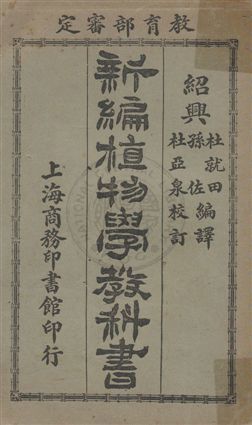 教育部審定
紹興
杜就田
孫佐
編譯
杜亞泉校訂
新編植物學教科書
上海商務印書館印行